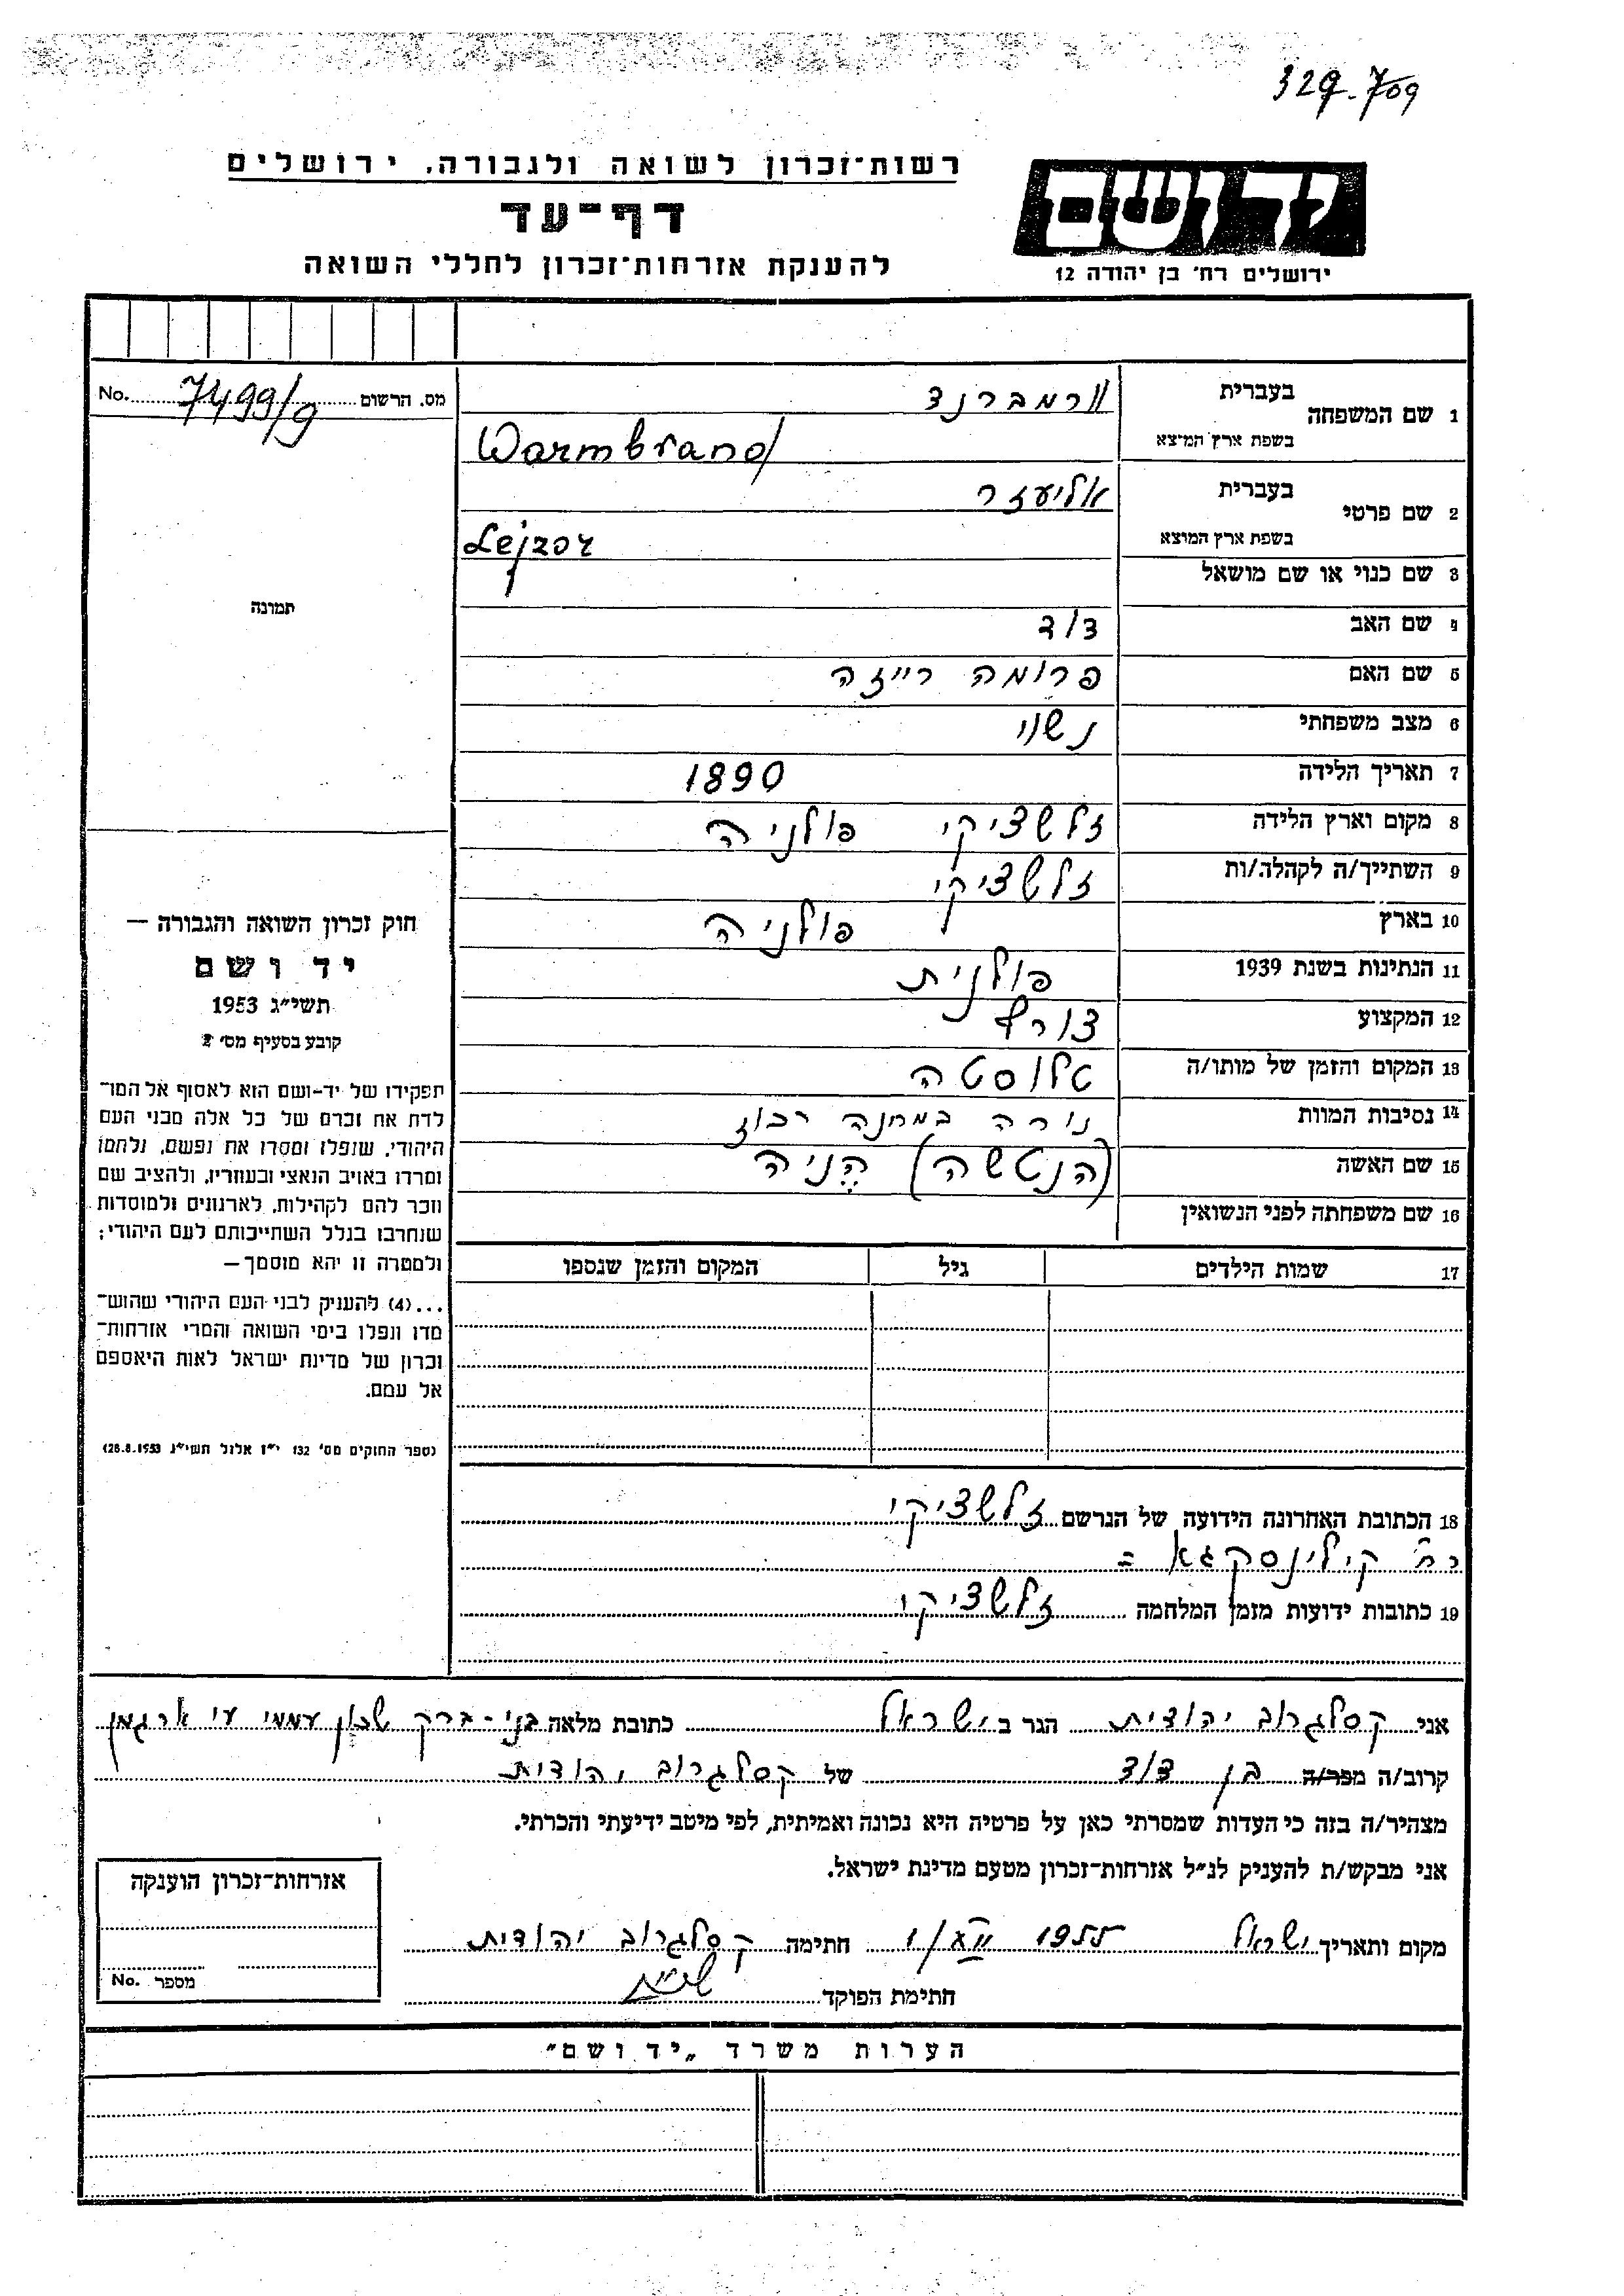 329-709
רשות־זכרון לשואה ולגבורה, ירושלים
יד ושם
דף־עד
להענקת אזרחות־זכרון לחללי השואה
ירושלים רח' בן יהודה 12
מס. הרשום 7499/9 No.
1 שם המשפחה בעברית וורמברנד
בשפת ארץ המוצא Warmbrand
2 שם פרטי בעברית אליעזר
בשפת ארץ המוצא Lejzor
3 שם כנוי או שם מושאל
תמונה
4 שם האב דוד
5 שם האם פרומה רייזה
6 מצב משפחתי נשוי
7 תאריך הלידה 1890
8 מקום וארץ הלידה זלשציקי פולניה
9 השתייך/ה לקהלה/ות זלשציקי
10 בארץ פולניה
11 הנתינות בשנת 1939 פולנית
12 המקצוע צורף
13 המקום והזמן של מותו/ה טלוסטה
14 נסיבות המוות נורה במחנה רכוז
15 שם האשה (הנטשה) הניה
16 שם משפחתה לפני הנשואין
17 שמות הילדים גיל המקום והזמן שנספו
חוק זכרון השואה והגבורה —
יד ושם
תשי״ג 1953
קובע בסעיף מס' 2
תפקידו של יד-ושם הוא לאסוף אל המו־
לדת את זכרם של כל אלה מבני העם
היהודי, שנפלו ומסרו את נפשם, נלחמו
ומרדו באויב הנאצי ובעוזריו, ולהציב שם
וזכר להם לקהילות, לארגונים ולמוסדות
שנחרבו בגלל השתייכותם לעם היהודי;
ולמטרה זו יהא מוסמך —
...(4) להעניק לבני העם היהודי שהוש־
מדו ונפלו בימי השואה והמרי אזרחות־
זכרון של מדינת ישראל לאות היאספם
אל עמם.
(ספר החוקים מס' 132 י״ז אלול תשי״ג 28.8.1953)
18 הכתובת האחרונה הידועה של הנרשם זלשציקי
רח' קילינסקגא =
19 כתובות ידועות מזמן המלחמה זלשציקי
אני קסלגרוב יהודית הגר ב ישראל כתובת מלאה בני-ברק שכון עממי ארגמן
קרוב/ה מכר/ה בן דוד של קסלגרוב יהודית
מצהיר/ה בזה כי העדות שמסרתי כאן על פרטיה היא נכונה ואמיתית, לפי מיטב ידיעתי והכרתי.
אני מבקש/ת להעניק לנ״ל אזרחות־זכרון מטעם מדינת ישראל.
אזרחות־זכרון הוענקה
מספר No.
מקום ותאריך ישראל 1955 חתימה קסלגרוב יהודית
חתימת הפוקד
הערות משרד „יד ושם״